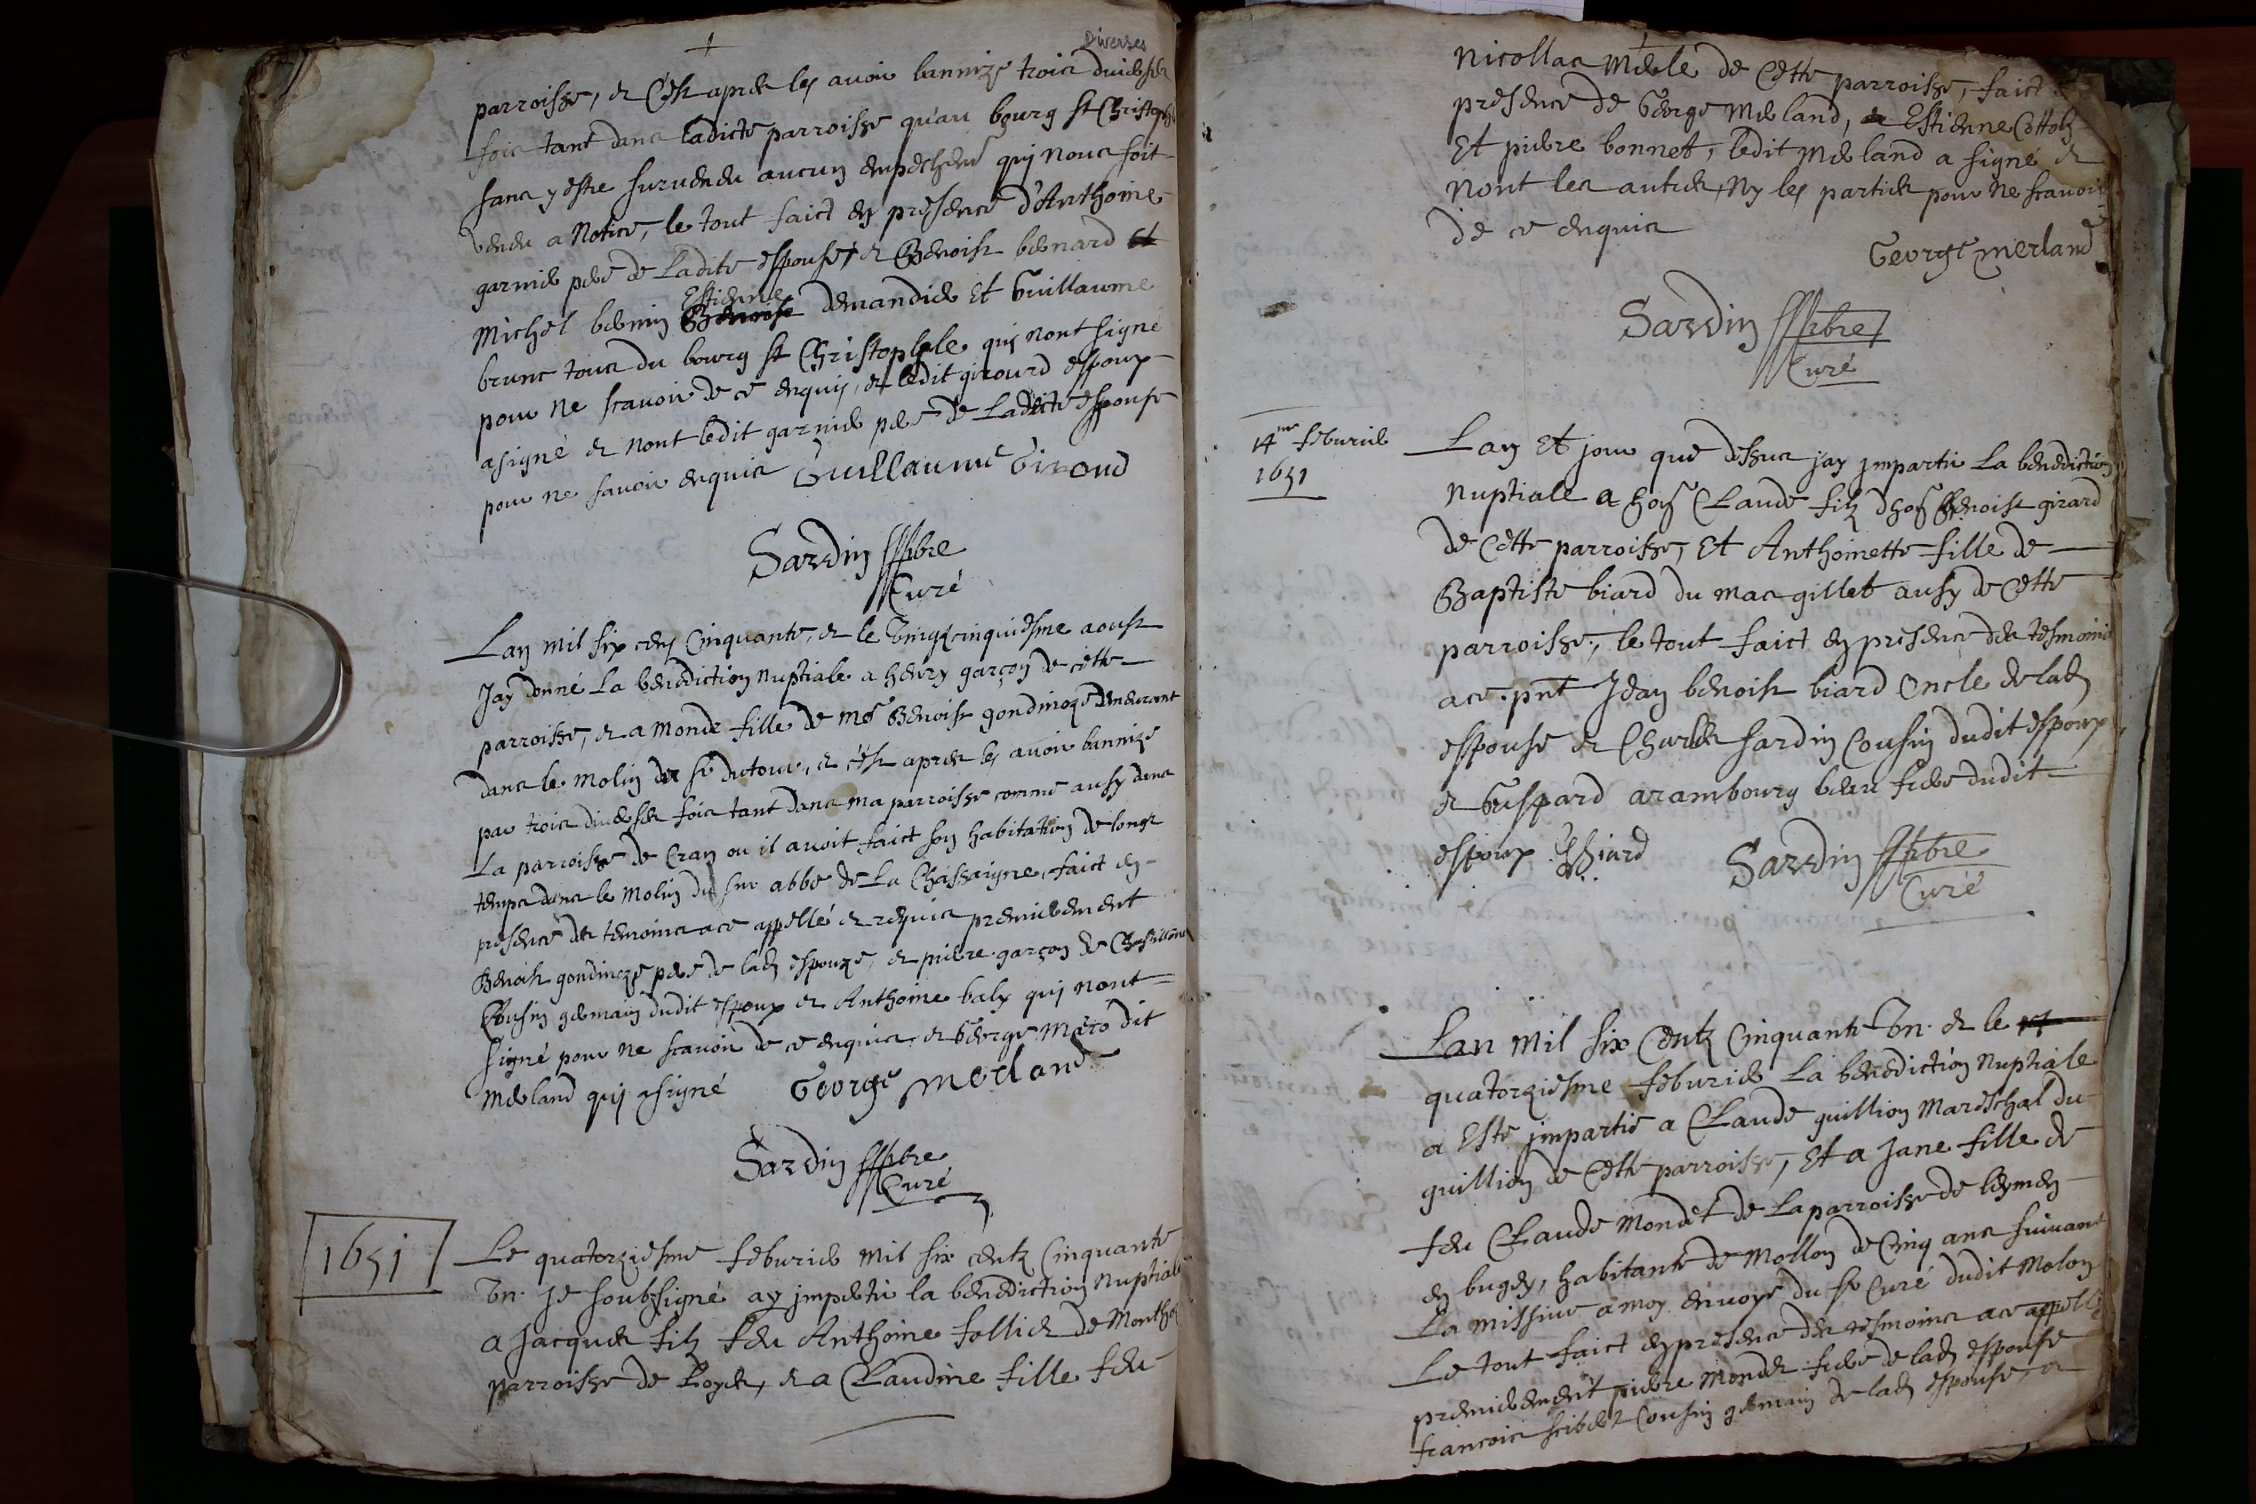 Diverses
parroisse, et C'est apres les avoir bannize trois diverses
fois tant dans ladicte parroisse qu'au bourg st Christophle
sans y estre survenu aucun empechem̃ quj nous soit
venu a Notice, le tout faict en presence d'Anthoine
garnier pere de Ladite espouse, et Benoist bernard et
Estienne
Michel bernin Benoist demandier Et Guillaume
brune tous du bourg st Christophle quj nont signé
pour ne scavoir de ce enquis, et ledit girourd espoux
a signé et nont ledit garnier pere de Ladicte espouse
pour ne savoir enquis Guillaume Giroud
Sardin pbre
Curé
Lan mil six cens Cinquante, et le Vingtcinquiesme aoust
Jay donné La benediction Nuptiale a henry garçon de cette
parroisse, et a Monde fille de Me Benoist gondinoze demeurant
dans le molin de sr dutour, et c'est apres les avoir bannize
par trois diverses fois tant dans ma parroisse comme aussy dans
La parroisse de Cran ou il avoit faict son habitation de longs
temps dans le Molin du sr abbe de La Chassaigne, faict en
presence des temoins a ce appellé et requis premierement
Benoist gondinoze pere de lad espouze, et pierre garçon de
Cousin germain dudit espoux et Anthoine baly quj nont
signé pour ne scavoir de ce enquis, et George Maro dit
Merland quj a signé George Merland
Sardin pbre
Curé
1651
Le quatorziesme feburier mil six centz Cinquante
Vn. Je soubsigné ay imperti la benediction Nuptiale
a Jacques filz feu Anthoine follier de Monthoz
parroisse de Loyes, et a Claudine fille feu
Nicollas Merle de Cette parroisse, faict en
presence de George Merland, Estienne Cottoz
Et pierre bonnet, ledit Merland a signé et
Nont les autres, Ny les parties pour Ne scavoir
de ce enquis
George Merland
Sardin pbre
Curé
14me feburier
1651
Lan Et jour que dessus jay imparti La benediction
Nuptiale a hoñ Claude filz dhoñ Benoist girard
de Cette parroisse, Et Anthoinette fille de
Baptiste biard du mas gillet aussy de Cette
parroisse, le tout faict en presence des tesmoins
a ce. pnt Jean benoist biard Oncle de lad
espouse et Charles sardin Cousin dudit espoux,
et Guspard arambourg beau frere dudit
espoux JBBiard Sardin pbre
Curé
Lan Mil six Centz Cinquante Vn. et le 14
quatorziesme feburier La benediction Nuptiale
a Este impartie a Claude guillion Mareschal du
guillion de Cette parroisse, Et a Jane fille de
feu Claude Mondet de La parroisse de leymen
en bugey, habitante de Mollon de Cinq ans suivant
La missive a moy envoyé du sr Curé dudit Molon
Le tout faict en presence des tesmoins a ce appellé
premierement pierre Mondet frere de lad espouse
francois Cousin germain de lad espouse, et